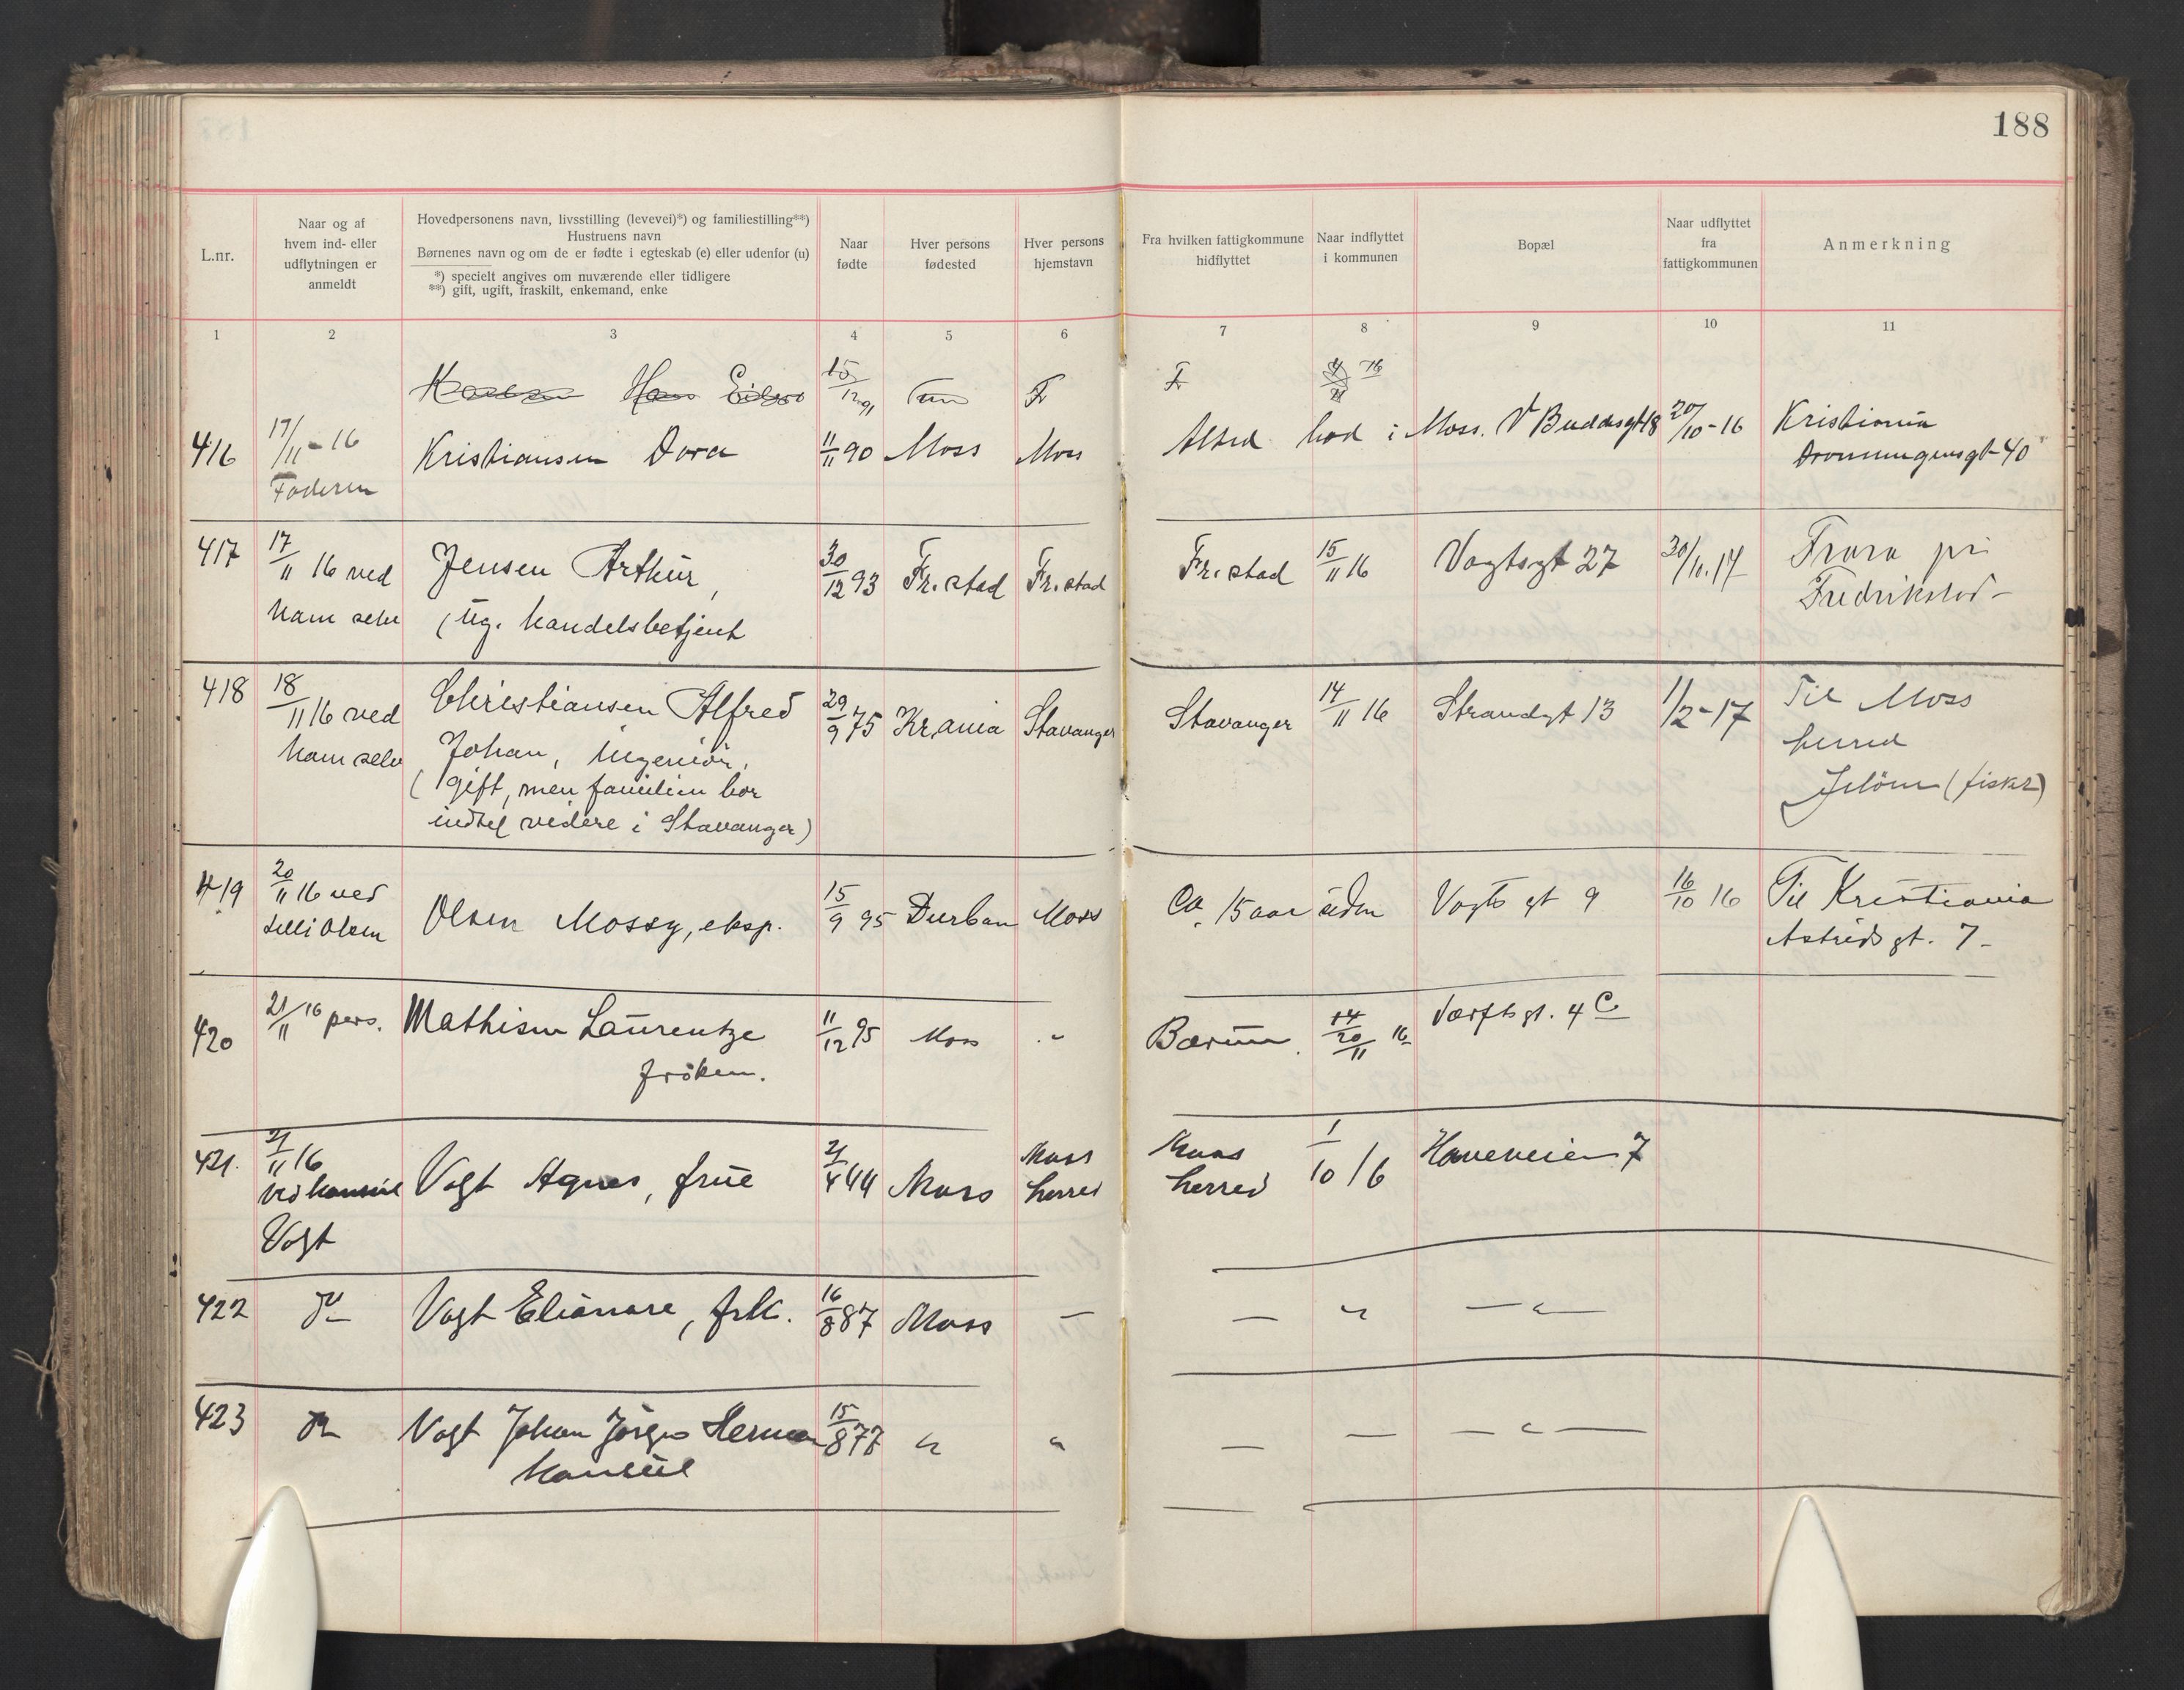 188
L.nr.
Naar og af
hvem ind- eller
udflytningen er
anmeldt
Hovedpersonens navn, livsstilling (levevei)*) og familiestilling**)
Hustruens navn
Børnenes navn og om de er fødte i egteskab (e) eller udenfor (u)
*) specielt angives om nuværende eller tidligere
**) gift, ugift, fraskilt, enkemand, enke
Naar
fødte
Hver persons
fødested
Hver persons
hjemstavn
Fra hvilken fattigkommune
hidflyttet
Naar indflyttet
i kommunen
Bopæl
Naar udflyttet
fra
fattigkommunen
Anmerkning
1 2 3 4 5 6 7 8 9 10 11
Hans 15/12 91 Fr
416 17/11-16 Kristiansen Dora 11/11 90 Moss Moss Altid bod i Moss. V Buddesgt 18 20/10-16 Kristiania
Faderen Dronningensgt 40
417 17/11 16 ved Jensen Arthur, 30/12 93 Fr.stad Fr.stad Fr.stad 15/11 16 Vogtsgt 27 30/11.17
ham selv (ug. handelsbetjent Fredrikstad-
418 18/11 16 ved Christiansen Alfred 29/9 75 Kr.ania Stavanger Stavanger 14/11 16 Strandgt 13 1/2-17 Til Moss
ham selv Johan, ingeniør, herred
(gift, men familien bor Jeløen (fisker)
indtil videre i Stavanger)
419 20/11 16 ved Olsen Mossy, eksp. 15/9 95 Durban Moss Ca. 15 aar siden Vogts gt 9 16/10 16 Til Kristiania
Lilli Olsen Astrids gt. 7-
420 21/11 16 pers. Mathisen Laurentze 11/12 95 Moss " Bærum 20/11 16 Værftsgt. 4 C
frøken.
421. 21/11 16 Vogt Agnes, frue 21/4 44 Moss Moss herred Moss herred 1/10 16 Haveveien 7
ved konsul
Vogt
422 Do Vogt Elianore, frk. 16/8 87 Moss — — " — " —
423 Do Vogt Johan Jørgen Herman 15/8 77 " " — — — " —
Konsul